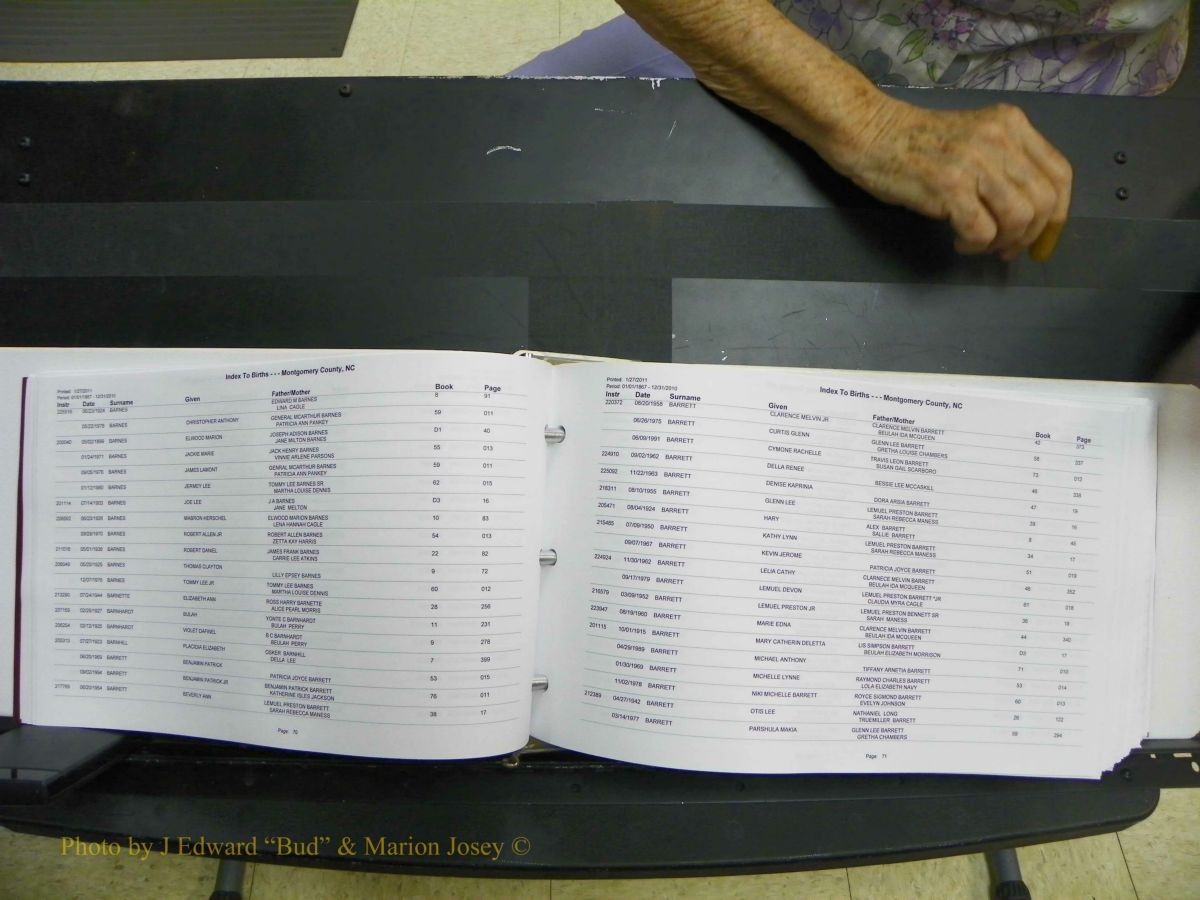 Index To Births - - - Montgomery County, NC
Printed: 1/27/2011
Period: 01/01/1867 - 12/31/2010
Instr Date Surname Given Father/Mother Book Page
06/23/1924 BARNES EDWARD M BARNES 8 91
LINA CAGLE
05/22/1978 BARNES CHRISTOPHER ANTHONY GENERAL MCARTHUR BARNES 59 011
PATRICIA ANN PANKEY
200040 05/02/1899 BARNES ELWOOD MARION JOSEPH ADISON BARNES D1 40
JANE MILTON BARNES
01/24/1971 BARNES JACKIE MARIE JACK HENRY BARNES 55 013
VINNIE ARLENE PARSONS
BARNES JAMES LAMONT GENRAL MCARTHUR BARNES 59 011
PATRICIA ANN PANKEY
01/12/1980 BARNES JERMEY LEE TOMMY LEE BARNES SR 62 015
MARTHA LOUISE DENNIS
201114 07/14/1903 BARNES JOE LEE J A BARNES D3 16
JANE MELTON
BARNES MABRON HERSCHEL ELWOOD MARION BARNES 10 83
LENA HANNAH CAGLE
BARNES ROBERT ALLEN JR ROBERT ALLEN BARNES 54 013
ZETTA KAY HARRIS
211016 05/01/1938 BARNES ROBERT DANIEL JAMES FRANK BARNES 22 82
CARRIE LEE ATKINS
05/25/1925 BARNES THOMAS CLAYTON LILLY EPSEY BARNES 9 72
12/07/1978 BARNES TOMMY LEE JR TOMMY LEE BARNES 60 012
MARTHA LOUISE DENNIS
213280 07/24/1944 BARNETTE ELIZABETH ANN ROSS HARRY BARNETTE 28 256
ALICE PEARL MORRIS
02/26/1927 BARNHARDT BULAH YONTE C BARNHARDT 11 231
BEULAH PERRY
206254 02/12/1925 BARNHARDT VIOLET DARNEL B C BARNHARDT 9 278
BEULAH PERRY
205313 07/27/1923 BARNHILL PLACIDIA ELIZABETH OSKER BARNHILL 7 399
DELLA LEE
BARRETT BENJAMIN PATRICK PATRICIA JOYCE BARRETT 53 015
BARRETT BENJAMIN PATRICK JR BENJAMIN PATRICK BARRETT 76 011
KATHERINE ISLES JACKSON
217765 06/20/1954 BARRETT BEVERLY ANN LEMUEL PRESTON BARRETT 38 17
SARAH REBECCA MANESS
Page: 70
Index To Births - - - Montgomery County, NC
Printed: 1/27/2011
Period: 01/01/1867 - 12/31/2010
Instr Date Surname Given Father/Mother Book Page
220372 06/20/1958 BARRETT CLARENCE MELVIN JR CLARENCE MELVIN BARRETT 42 373
BEULAH IDA MCQUEEN
06/26/1975 BARRETT CURTIS GLENN GLENN LEE BARRETT 58 337
GRETHA LOUISE CHAMBERS
06/09/1991 BARRETT CYMONE RACHELLE TRAVIS LEON BARRETT 73 012
SUSAN GAIL SCARBORO
224910 09/02/1962 BARRETT DELLA RENEE BESSIE LEE MCCASKILL 46 338
225092 11/22/1963 BARRETT DENISE KAPRINIA DORA ARSIA BARRETT 47 19
218311 08/10/1955 BARRETT GLENN LEE LEMUEL PRESTON BARRETT 39 16
SARAH REBECCA MANESS
205471 08/04/1924 BARRETT HARY ALEX BARRETT 8 45
SALLIE BARRETT
215485 07/09/1950 BARRETT KATHY LYNN LEMUEL PRESTON BARRETT 34 17
SARAH REBECCA MANESS
09/07/1967 BARRETT KEVIN JEROME PATRICIA JOYCE BARRETT 51 019
224924 11/30/1962 BARRETT LELIA CATHY CLARNECE MELVIN BARRETT 46 352
BEULAH IDA MCQUEEN
09/17/1979 BARRETT LEMUEL DEVON LEMUEL PRESTON BARRETT *JR 61 018
CLAUDIA MYRA CAGLE
216579 03/09/1952 BARRETT LEMUEL PRESTON JR LEMUEL PRESTON BENNETT SR 36 18
SARAH MANESS
223947 08/19/1960 BARRETT MARIE EDNA CLARENCE MELVIN BARRETT 44 340
BEULAH IDA MCQUEEN
201115 10/01/1915 BARRETT MARY CATHERIN DELETTA LIS SIMPSON BARRETT D3 17
BEULAH ELIZABETH MORRISON
04/29/1989 BARRETT MICHAEL ANTHONY TIFFANY ARNETIA BARRETT 71 010
01/30/1969 BARRETT MICHELLE LYNNE RAYMOND CHARLES BARRETT 53 014
LOLA ELIZABETH NAVY
11/02/1978 BARRETT NIKI MICHELLE BARRETT ROYCE SIGMOND BARRETT 60 013
EVELYN JOHNSON
212389 04/27/1942 BARRETT OTIS LEE NATHANIEL LONG 26 122
TRUEMILLER BARRETT
03/14/1977 BARRETT PARSHULA MAKIA GLENN LEE BARRETT 59 294
GRETHA CHAMBERS
Page: 71
Photo by J Edward “Bud” & Marion Josey ©